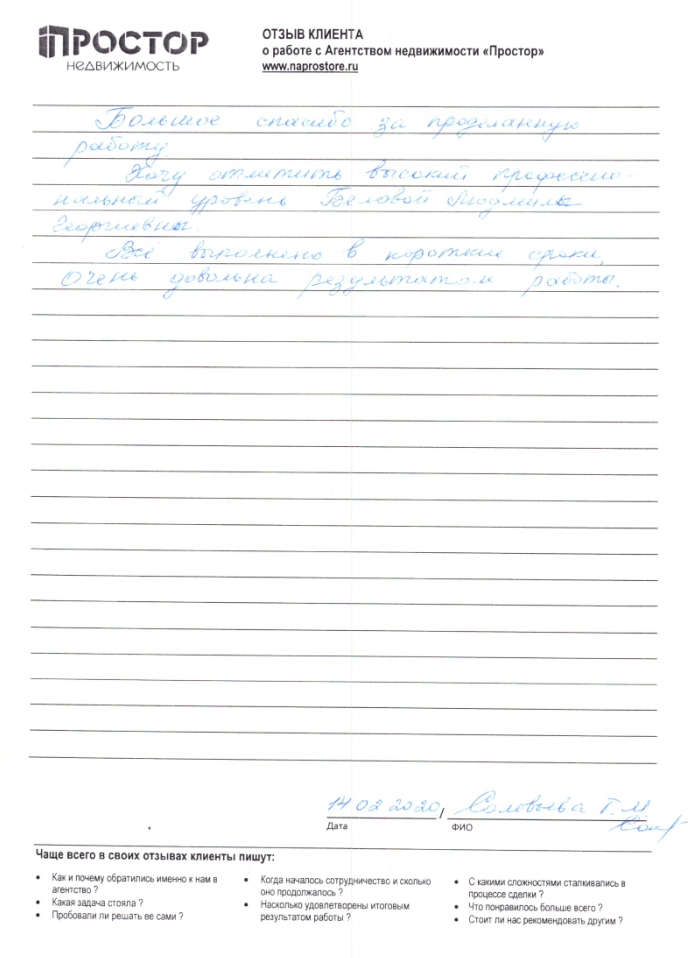 ПРОСТОР
НЕДВИЖИМОСТЬ
ОТЗЫВ КЛИЕНТА
о работе с Агентством недвижимости «Простор»
www.naprostore.ru
Большое спасибо за проделанную
работу
Хочу отметить высокий професси-
нальный уровень Беловой Людмилы
Георгиевны.
Всё выполнено в короткие сроки,
Очень довольна результатом работы.
14 02 2020 / Соловьева Т.М
Дата ФИО
Чаще всего в своих отзывах клиенты пишут:
• Как и почему обратились именно к нам в
агентство ?
• Какая задача стояла ?
• Пробовали ли решать ее сами ?
• Когда началось сотрудничество и сколько
оно продолжалось ?
• Насколько удовлетворены итоговым
результатом работы ?
• С какими сложностями сталкивались в
процессе сделки ?
• Что понравилось больше всего ?
• Стоит ли нас рекомендовать другим ?